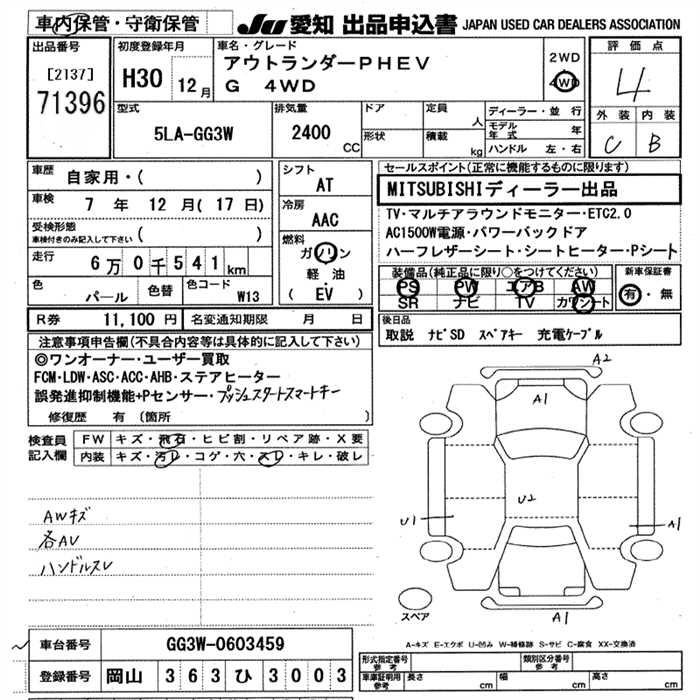 車内保管・守衛保管
JU 愛知 出品申込書 JAPAN USED CAR DEALERS ASSOCIATION
出品番号
[2137]
71396
初度登録年月
H30 12月
車名・グレード
アウトランダーPHEV
G 4WD
2WD
4WD
評価点
4
外装 内装
C B
型式
5LA-GG3W
排気量
2400 CC
ドア
形状
定員 人
積載 kg
ディーラー・並行
モデル年式 年
ハンドル 左・右
車歴 自家用・( )
車検 7年 12月(17日)
受検形態
車検付きのみ記入して下さい ( )
走行 6万0千541km
色 パール
色替
色コード W13
シフト
AT
冷房
AAC
燃料
ガソリン
軽油
( EV )
セールスポイント(正常に機能するものに限ります)
MITSUBISHIディーラー出品
TV・マルチアラウンドモニター・ETC2.0
AC1500W電源・パワーバックドア
ハーフレザーシート・シートヒーター・Pシート
装備品(純正品に限り○をつけてください)
PS PW エアB AW
SR ナビ TV カワシート
新車保証書
有・無
R券 11,100円
名変通知期限 月 日
後日品
取説 ナビSD スペアキー 充電ケーブル
注意事項申告欄(不具合内容等は具体的に記入して下さい)
◎ワンオーナー・ユーザー買取
FCM・LDW・ASC・ACC・AHB・ステアヒーター
誤発進抑制機能+Pセンサー・プッシュスタートスマートキー
修復歴 有 (箇所 )
検査員記入欄
FW キズ・飛石・ヒビ割・リペア跡・X要
内装 キズ・汚レ・コゲ・穴・スレ・キレ・破レ
AWキズ
各AU
ハンドルスレ
A2
A1
U2
U1
A1
A1
スペア
A-キズ E-エクボ U-凹み W-補修跡 S-サビ C-腐食 XX-交換済
車台番号 GG3W-0603459
登録番号 岡山 363 ひ 3003
形式指定番号 参考
類別区分番号 参考
車庫証明用 参考
長さ cm
幅 cm
高さ cm